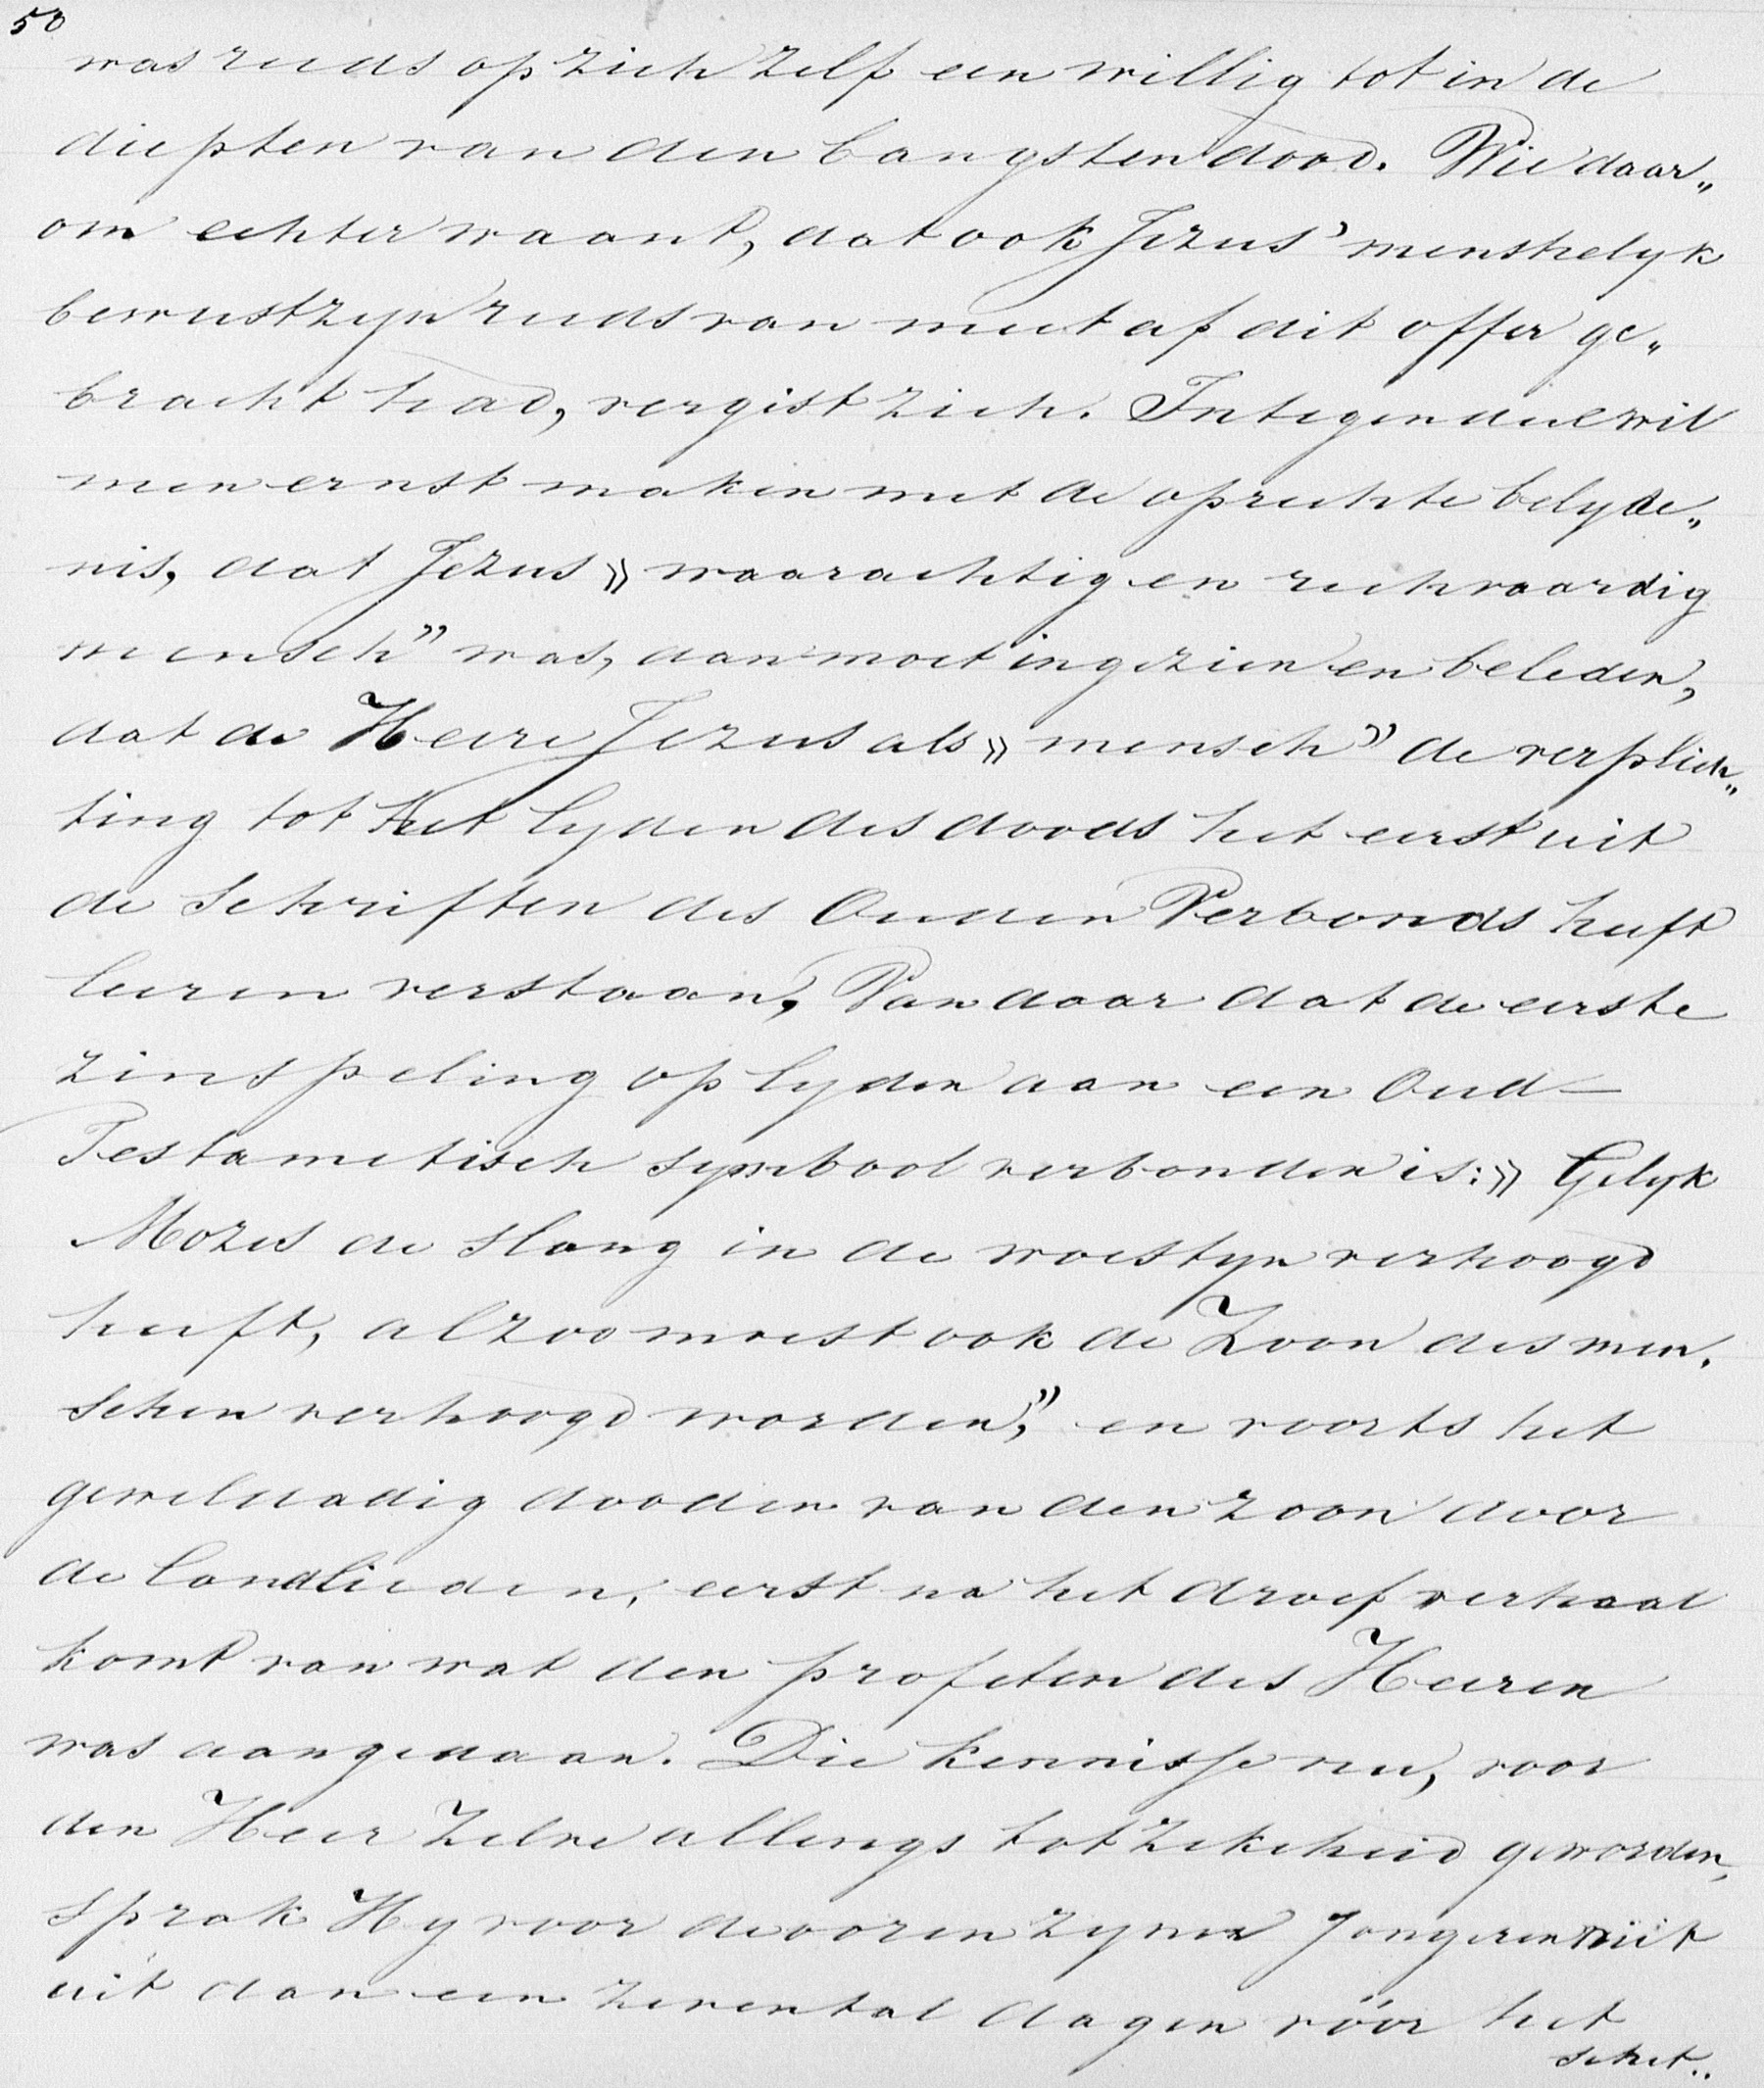 50
was reeds op zich zelf een willig tot in de
diepten van den bangsten dood. Wie daar„
om echter waant, dat ook Jezus' menshelyk
bewustzyn reeds van meet af dit offer ge„
bracht had, vergist zich. Integendeel wil
men ernst maken met de oprechte belyde„
nis, dat Jezus » waarachtig en rechvaardig
mensch” was, dan moet ingezien en beleden,
dat de Heere Jezus als » mensch” de verplich„
ting tot het lyden des doods het eerst uit
de Schriften des Ouden Verbonds heeft
leeren verstaan, Van daar dat de eerste
zinspeling op lyden aan een Oud—
Testametisch symbool verbonden is: » Gelyk
Mozes de slang in de woestyn verhoogd
heeft, alzoo moest ook de Zoon des men.
schen verhoogd worden,” en voorts het
gewelddadig dooden van den zoon door
de landlieden, eerst na het droef verhaal
komt van wat den profeten des Heeren
was aangedaan. Die kennisse nu, voor
den Heer Zelve allengs tot zekeheid geworden,
sprak Hy voor de ooren zyner Jongeren niit
uit dan een zevental dagen vóór het
schet..